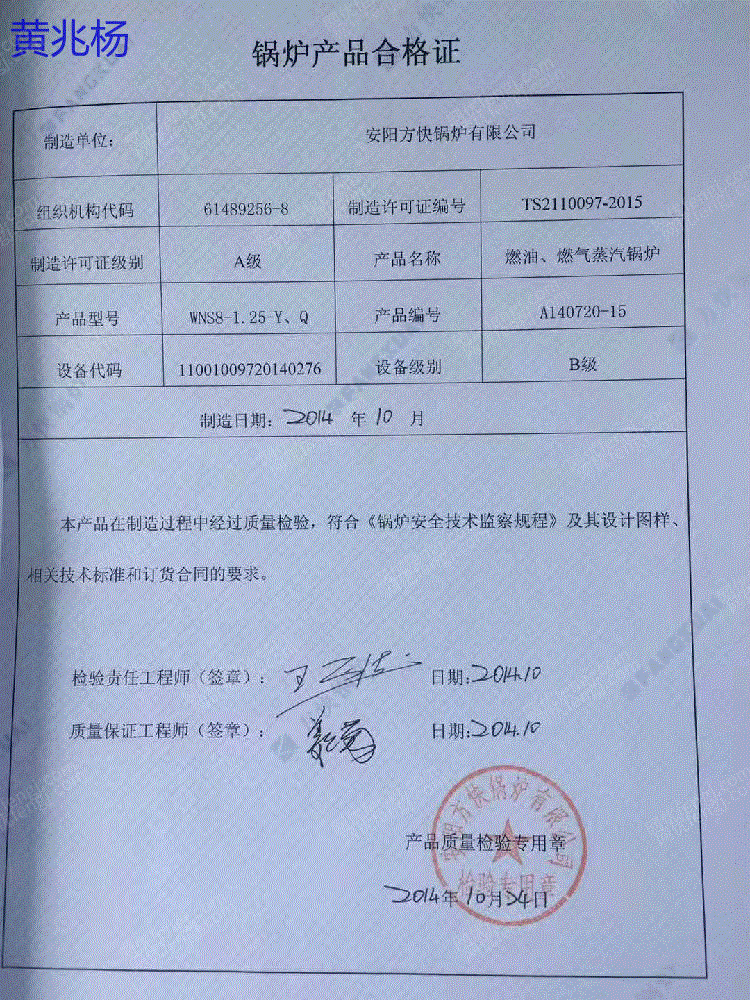 黄兆杨
锅炉产品合格证
制造单位： 安阳方快锅炉有限公司
组织机构代码 61489256-8 制造许可证编号 TS2110097-2015
制造许可证级别 A级 产品名称 燃油、燃气蒸汽锅炉
产品型号 WNS8-1.25-Y、Q 产品编号 A140720-15
设备代码 11001009720140276 设备级别 B级
制造日期：2014 年 10 月
本产品在制造过程中经过质量检验，符合《锅炉安全技术监察规程》及其设计图样、
相关技术标准和订货合同的要求。
检验责任工程师（签章）： 日期：2014.10
质量保证工程师（签章）： 日期：2014.10
安阳方快锅炉有限公司
产品质量检验专用章
检验专用章
2014年10月24日